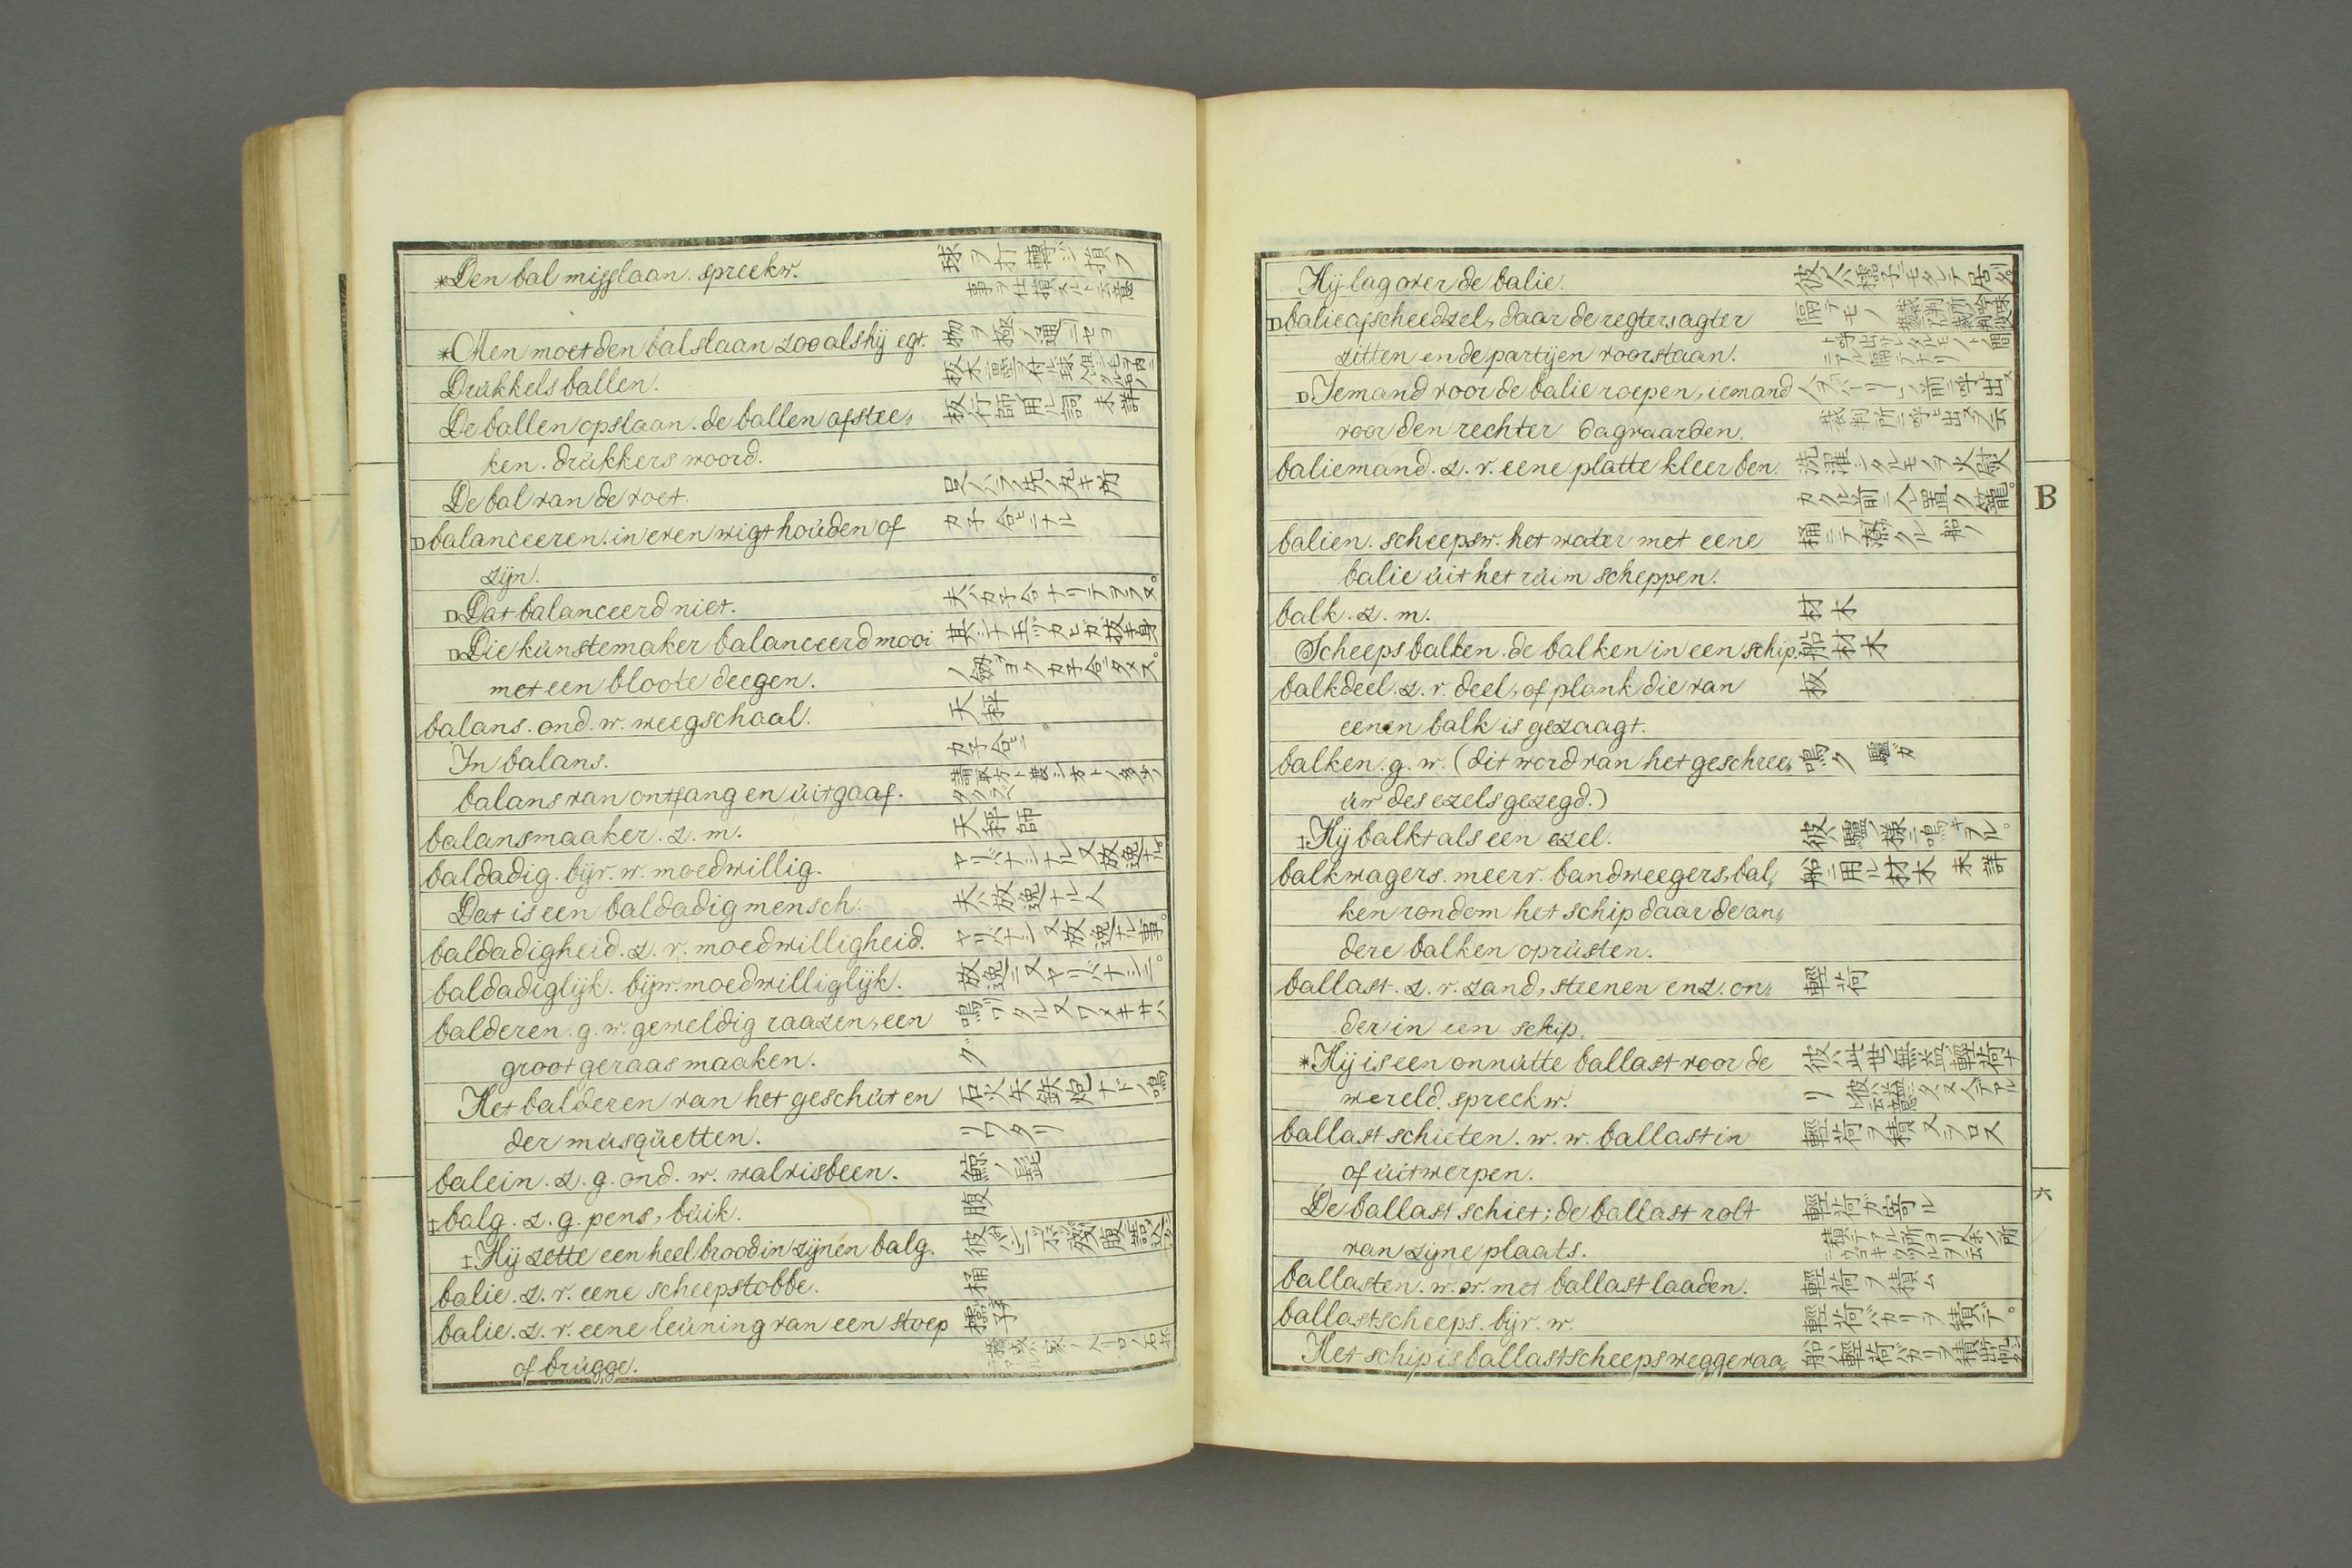 *Den bal misslaan. spreekw. 球ヲ打轉シ損フ
事ヲ仕損スルト云意
*Men moet den bal slaan zoo als hij egt. 物ヲ極ノ通ニセヨ
Drukkels ballen.
De ballen opslaan. de ballen afstee„ 板行師ノ用ル詞 未詳
ken. drukkers woord.
De bal van de voet.
Dbalanceeren. in even wigt houden of カ子合ニナル
zijn.
DDat balanceerd niet. 夫ハカ子合ナリテヲラヌ。
DDie kunstemaker balanceerd mooi
met een bloote deegen.
balans. ond. w. weegschaal. 天秤
In balans. カ子合ニ。
balans van ontfang en uitgaaf.
balansmaaker. z. m. 天秤師
baldadig. bijv. w. moedwillig. ヤリバナシナル又放逸ナル。
Dat is een baldadig mensch. 夫ハ放逸ナル人
baldadigheid. z. v. moedwilligheid. ヤリバナシ又放逸ナル事。
baldadiglijk. bijw. moedwilliglijk. 放逸ニ又ヤリバナシニ。
balderen. g. w. geweldig raazen, een 鳴リワタル又ワメキサハ
groot geraas maaken. グ
Het balderen van het geschut en 石火矢鉄炮ナドノ鳴
der musquetten. リワタリ
balein. z. g. ond. w. walvisbeen. 鯨ノ髭
‡balg. z. g. pens, buik. 腹
‡Hij zette een heel brood in zijnen balg.
balie. z. v. eene scheepstobbe. 桶
balie. z. v. eene leuning van een stoep
of brugge.
Hij lag over de balie.
Dbalie afscheedzel, daar de regters agter
zitten en de partijen voorstaan.
DIemand voor de balie roepen, iemand
voor den rechter dagvaarden. 裁判所ニ呼出スヲ云
baliemand. z. v. eene platte kleerben. 洗濯シタルモノヲ火熨
カクル前ニ入置ク籠。
balien. scheepsw. het water met eene
balie uit het ruim scheppen.
balk. z. m. 材木
Scheepsbalken. de balken in een schip. 船材木
balkdeel. z. v. deel, of plank die van 板
eenen balk is gezaagt.
balken. g. w. (dit word van het geschree„ 鳴ク 驢ガ
uw des ezels gezegd.)
‡Hij balkt als een ezel. 彼ハ驢ノ様ニ鳴キヲル。
balkwagers. meerv. bandweegers, bal„ 船ニ用ル材木 未詳
ken rondom het schip daar de an„
dere balken oprusten.
ballast. z. v. zand, steenen enz. on„ 輕荷
der in een schip.
*Hij is een onnutte ballast voor de 彼ハ此世ノ無益ノ輕荷ナ
wereld. spreekw.
ballast schieten. w. w. ballast in 輕荷ヲ積又ヲロス
of uitwerpen.
De ballast schiet; de ballast rolt 輕荷ガ寄ル
van zijne plaats.
ballasten. w. w. met ballast laaden. 輕荷ヲ積ム
ballastscheeps. bijv. w. 輕荷バカリヲ積デ。
Het schip is ballastscheeps weggeraa„
B
六